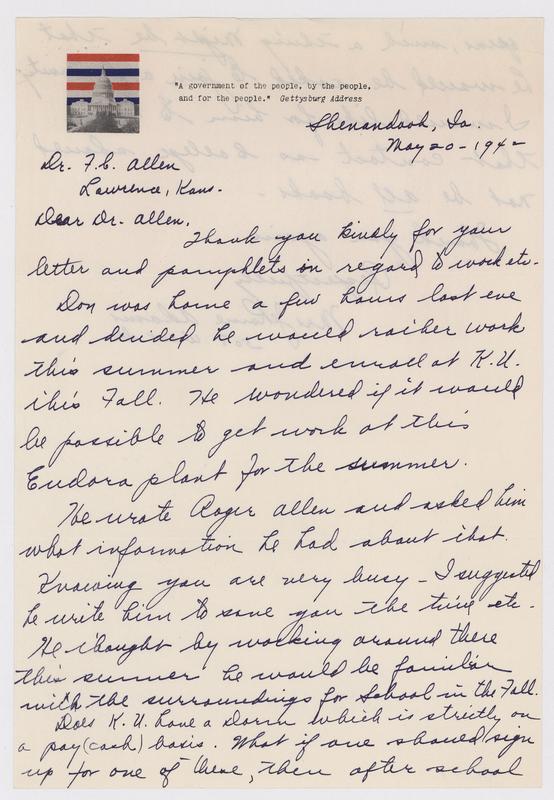 "A government of the people, by the people,
and for the people." Gettysburg Address
Shenandoah, Ia.
May 20 - 1942
Dr. F.C. Allen
Lawrence, Kans.
Dear Dr. Allen,
Thank you kindly for your
letter and pamphlets in regard to work etc.
Don was home a few hours last eve
and decided he would rather work
this summer and enroll at K.U.
this Fall. He wondered if it would
be possible to get work at this
Eudora plant for the summer.
He wrote Roger Allen and asked him
what information he had about that.
Knowing you are very busy - I suggested
he write him to save you the time etc.
He thought by working around there
this summer he would be familiar
with the surroundings for School in the Fall.
Does K.U. have a Dorm which is strictly on
a pay (cash) basis. What if one should sign
up for one of these, then after school